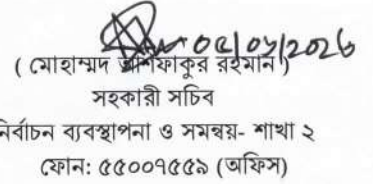 ০৫/০১/২০২৬
( মোহাম্মদ আশফাকুর রহমান )
সহকারী সচিব
নির্বাচন ব্যবস্থাপনা ও সমন্বয়- শাখা ২
ফোন: ৫৫০০৭৫৫৯ (অফিস)